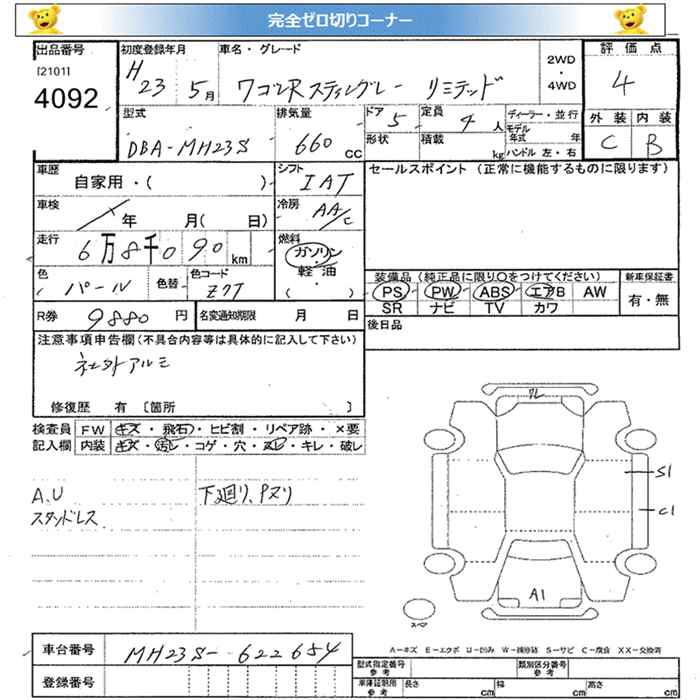 完全ゼロ切りコーナー
出品番号 初度登録年月 車名・グレード 2WD・4WD 評価点
[2101] 4092
H23 5月 ワゴンRスティングレー リミテッド 4
型式 排気量 ドア 5 定員 4人 ディーラー・並行 外装 内装
DBA-MH23S 660cc 形状 積載 kg モデル年式 年 ハンドル 左・右 C B
車歴 自家用・( ) シフト IAT セールスポイント (正常に機能するものに限ります)
車検 年 月( 日) 冷房 AA/C
走行 6万8千090km 燃料 ガソリン・軽油( )
色 パール 色替 色コード Z7T 装備品 (純正品に限り○をつけてください) 新車保証書
PS PW ABS エアB AW 有・無
SR ナビ TV カワ
R券 9880円 名変通知期限 月 日 後日品
注意事項申告欄(不具合内容等は具体的に記入して下さい)
社外アルミ
修復歴 有 〔箇所 〕
検査員 FW キズ・飛石・ヒビ割・リペア跡・×要
記入欄 内装 キズ・汚レ・コゲ・穴・スレ・キレ・破レ
A.U 下廻り、Pヌリ
スタッドレス
ワレ
S1
C1
A1
スペア
A-キズ E-エクボ U-凹み W-補修跡 S-サビ C-腐食 XX-交換済
車台番号 MH23S-622654
登録番号
型式指定番号 参考 類別区分番号 参考
車庫証明用 参考 長さ cm 幅 cm 高さ cm